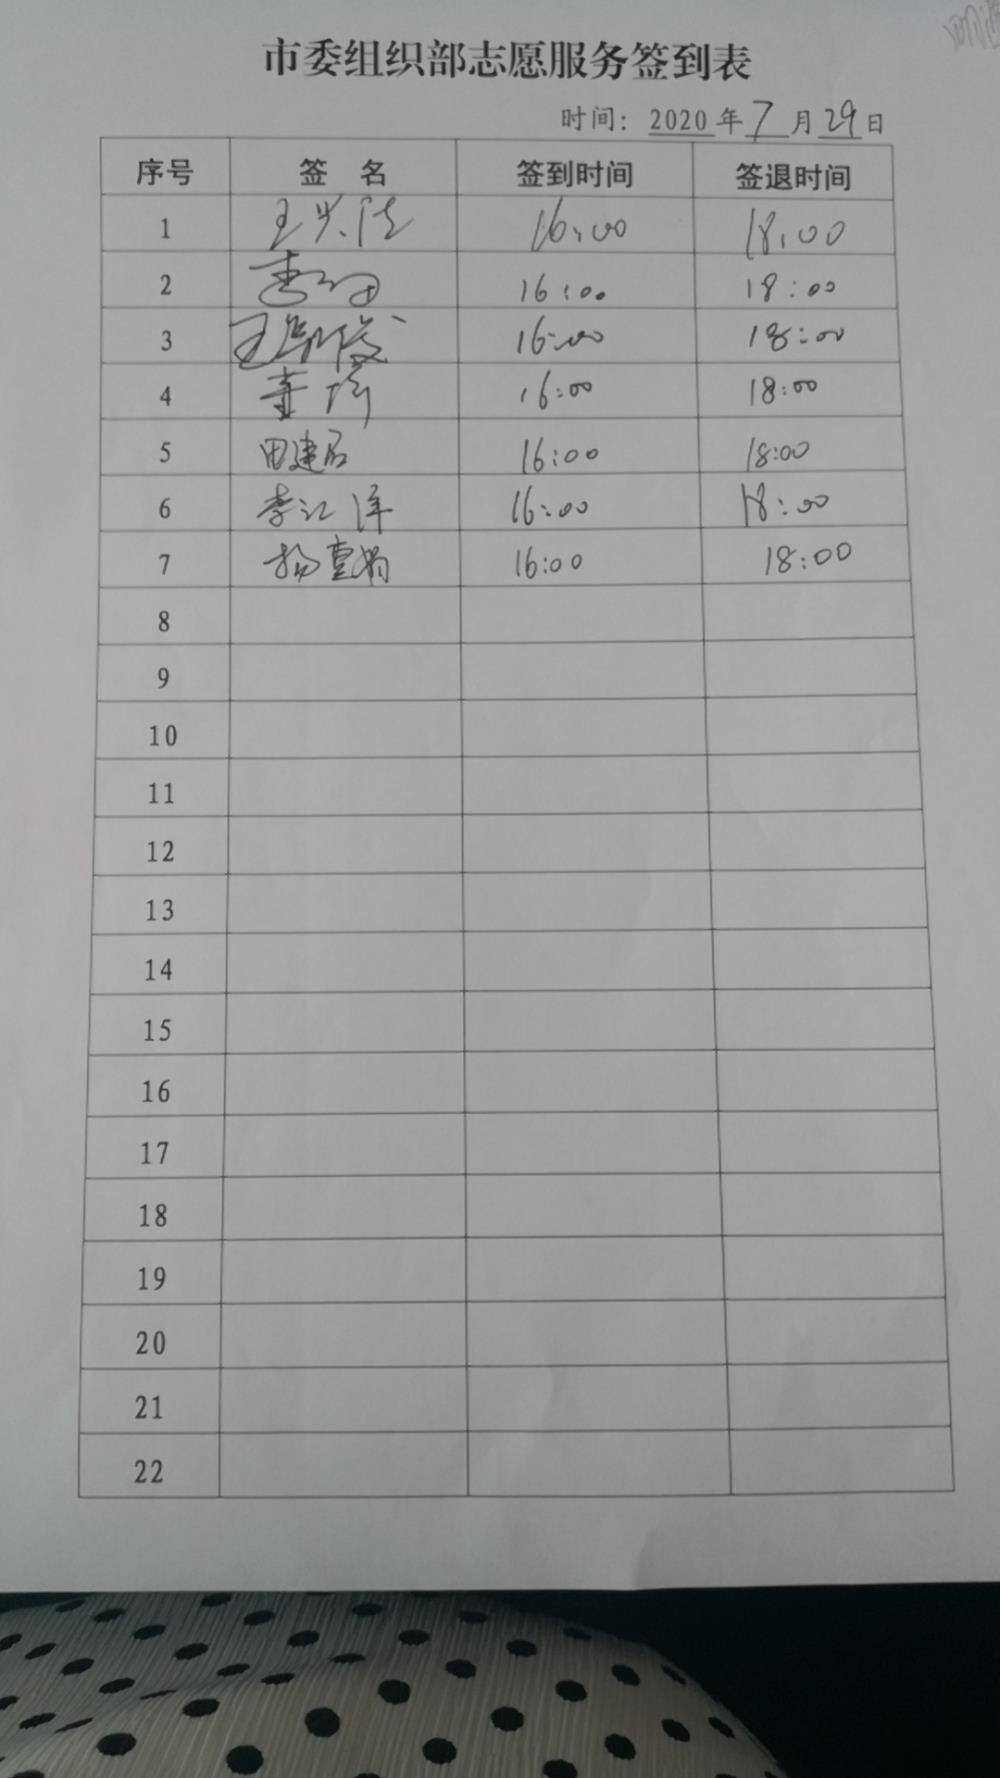 市委组织部志愿服务签到表
时间：2020年7月29日
序号 签 名 签到时间 签退时间
1 16:00 18:00
2 16:00 18:00
3 16:00 18:00
4 16:00 18:00
5 田建后 16:00 18:00
6 李江洋 16:00 18:00
7 杨 16:00 18:00
8
9
10
11
12
13
14
15
16
17
18
19
20
21
22